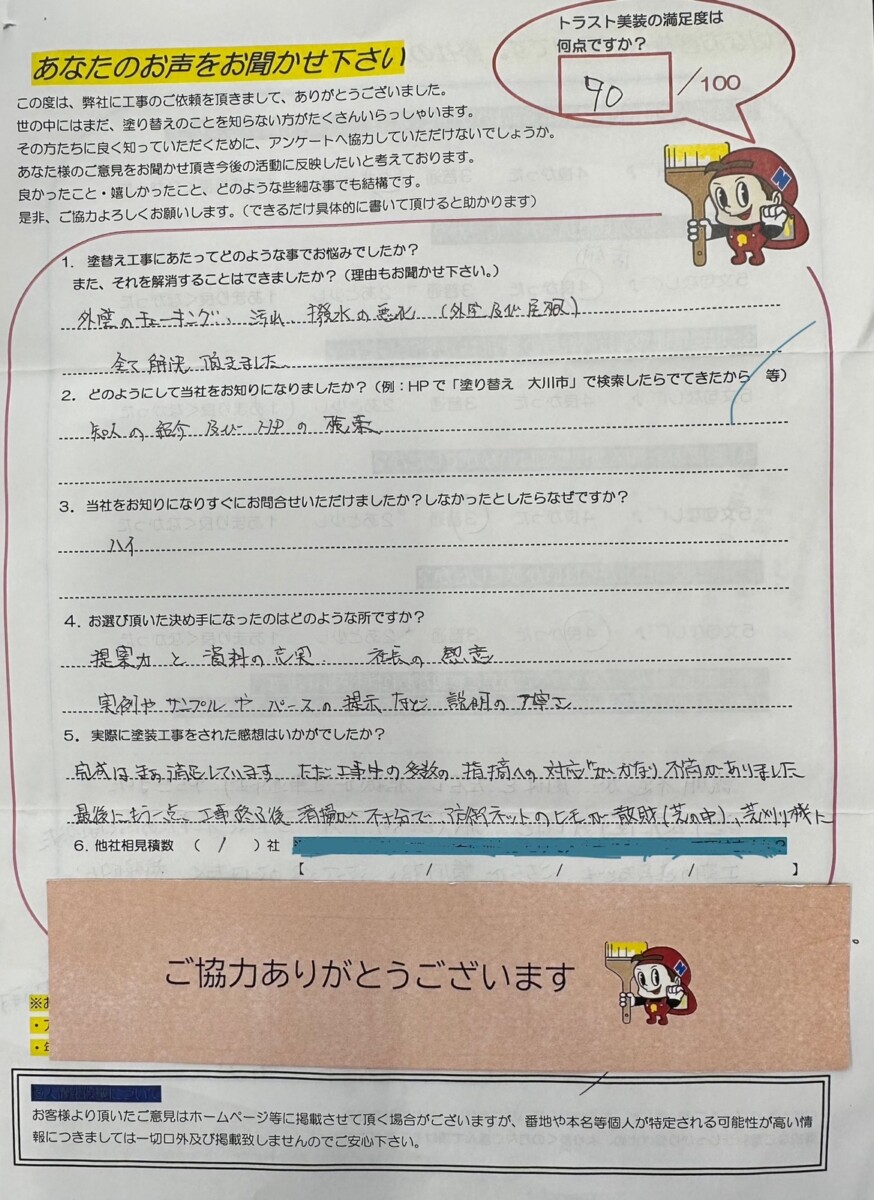 トラスト美装の満足度は
何点ですか？
90 /100
あなたのお声をお聞かせ下さい
この度は、弊社に工事のご依頼を頂きまして、ありがとうございました。
世の中にはまだ、塗り替えのことを知らない方がたくさんいらっしゃいます。
その方たちに良く知っていただくために、アンケートへ協力していただけないでしょうか。
あなた様のご意見をお聞かせ頂き今後の活動に反映したいと考えております。
良かったこと・嬉しかったこと、どのような些細な事でも結構です。
是非、ご協力よろしくお願いします。（できるだけ具体的に書いて頂けると助かります）
1．塗替え工事にあたってどのような事でお悩みでしたか？
また、それを解消することはできましたか？（理由もお聞かせ下さい。）
外壁のチョーキング、汚れ 撥水の悪化 （外壁及び屋根）
全て解決頂きました
2．どのようにして当社をお知りになりましたか？（例：HPで「塗り替え 大川市」で検索したらでてきたから 等）
知人の紹介 及び HPの 検索
3．当社をお知りになりすぐにお問合せいただけましたか？しなかったとしたらなぜですか？
ハイ
4．お選び頂いた決め手になったのはどのような所ですか？
提案力と 資料の充実 社長の 熱意
実例や サンプルや パースの 提示 など 説明の 丁寧さ
5．実際に塗装工事をされた感想はいかがでしたか？
完成はまあ満足しています ただ工事中の多数の 指摘への 対応がかなり 不満がありました
最後にもう一点、工事終了後 清掃が 不十分で 防鳥ネットのヒモが 散財（芝の中）、芝刈り機に
6．他社相見積数 （ 1 ）社
【 / / / 】
ご協力ありがとうございます
お客様より頂いたご意見はホームページ等に掲載させて頂く場合がございますが、番地や本名等個人が特定される可能性が高い情
報につきましては一切口外及び掲載致しませんのでご安心下さい。